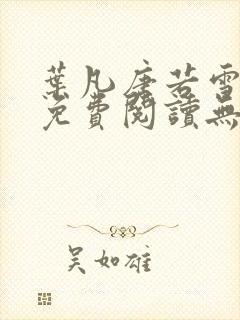 葉凡唐若雪
免費閱讀無
吳如雄